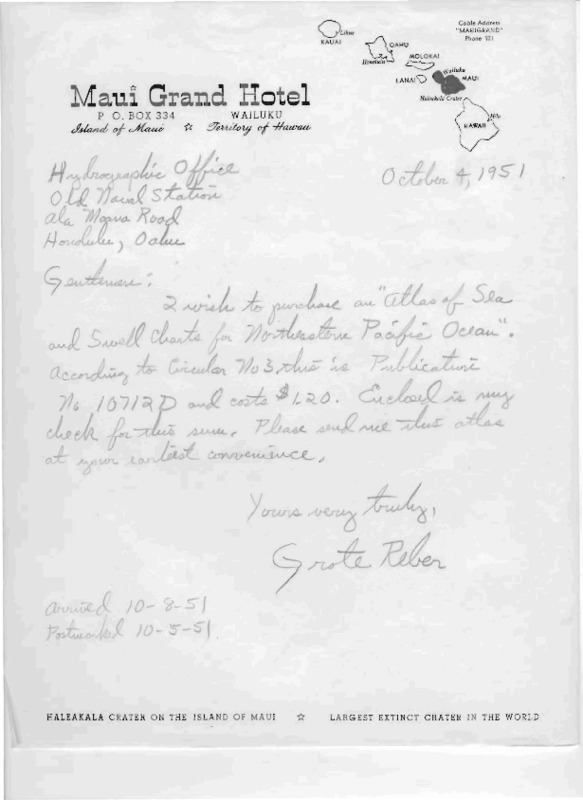 Cable Address
"MAUIGRAND"
Phone 121
Lihue
KAUAI
OAHU
Honolulu
MOLOKAI
LANAI
Wailuku
MAUI
Haleakala Crater
Hilo
HAWAII
Maui Grand Hotel
P. O. BOX 334 WAILUKU
Island of Maui ☆ Territory of Hawaii
Hydrographic Office
Old Naval Station
Ala Moana Road
Honolulu, Oahu
October 4, 1951
Gentlemen:
I wish to purchase an "Atlas of Sea
and Swell Charts for Northeastern Pacific Ocean".
According to Circular No 3, this is Publication
No 10712D and costs $1.20. Enclosed is my
check for this sum. Please send me this atlas
at your earliest convenience.
Yours very truly,
Grote Reber
Arrived 10-8-51
Postmarked 10-5-51
HALEAKALA CRATER ON THE ISLAND OF MAUI ☆ LARGEST EXTINCT CRATER IN THE WORLD